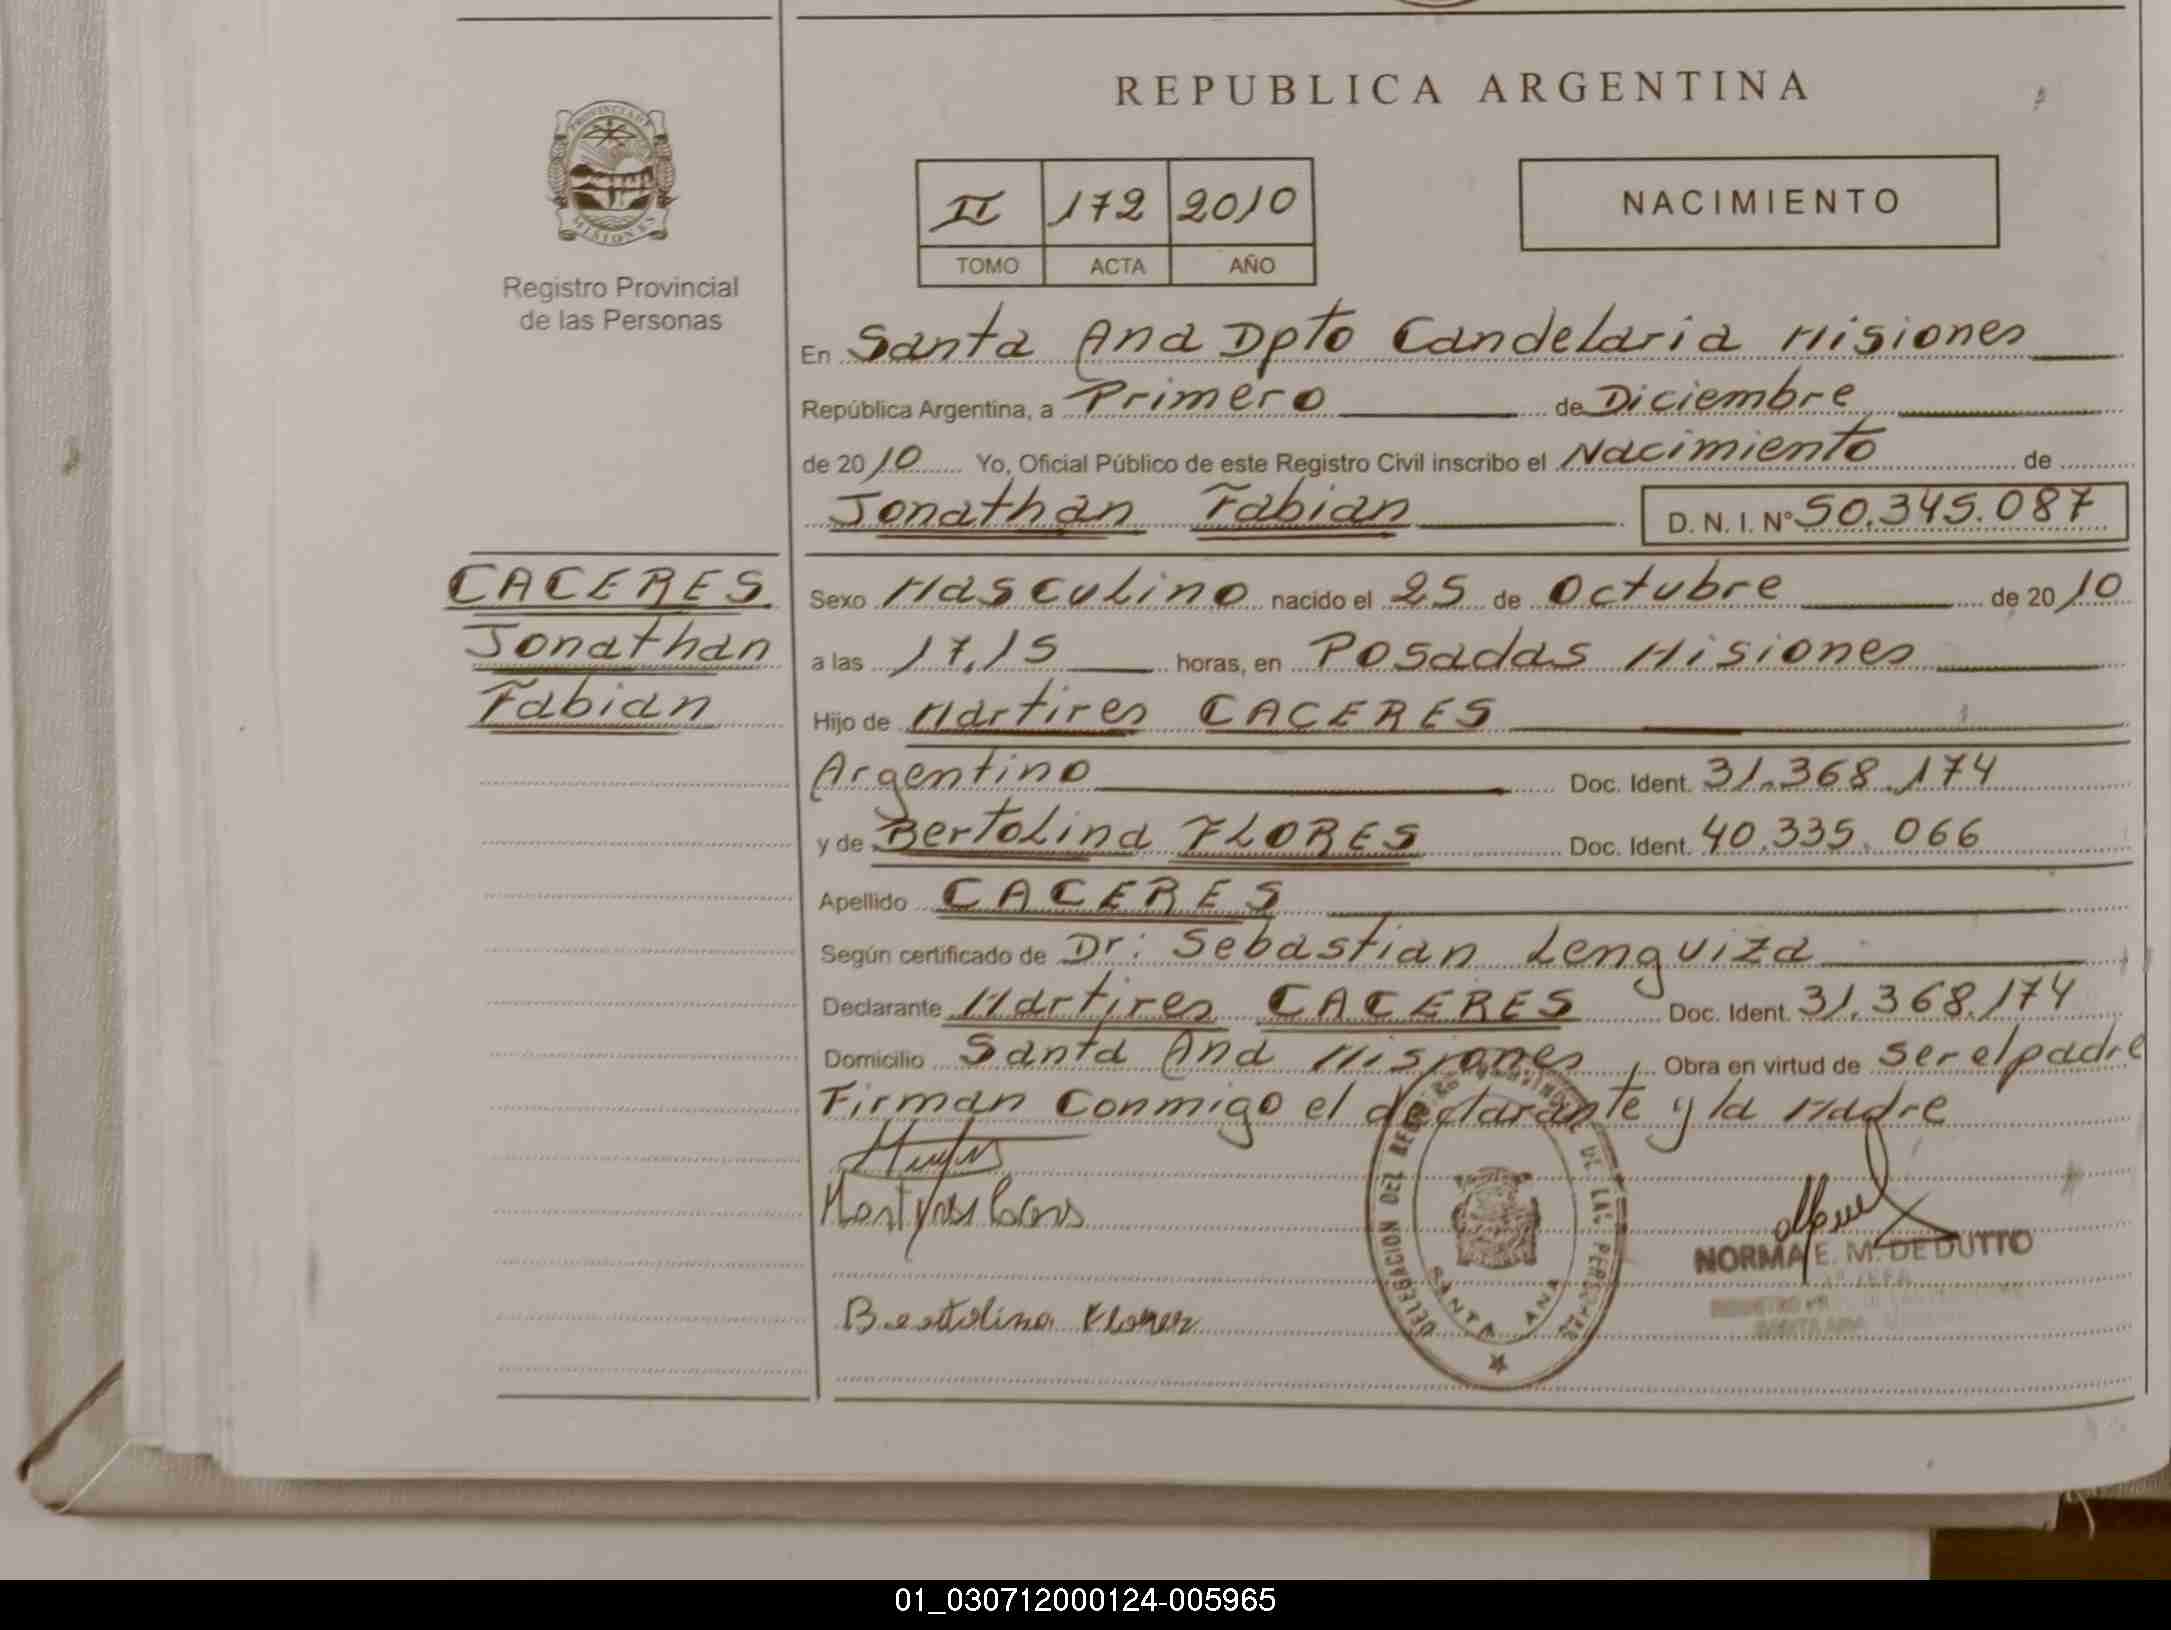 REPUBLICA ARGENTINA
PROVINCIA DE
MISIONES
Registro Provincial
de las Personas
II 172 2010
TOMO ACTA AÑO
NACIMIENTO
En Santa Ana Dpto Candelaria Misiones
República Argentina, a Primero de Diciembre
de 2010 Yo, Oficial Público de este Registro Civil inscribo el Nacimiento de
Jonathan Fabian D. N. I. Nº 50.345.087
CACERES
Jonathan
Fabian
Sexo Masculino nacido el 25 de Octubre de 2010
a las 17,15 horas, en Posadas Misiones
Hijo de Martires CACERES
Argentino Doc. Ident. 31.368.174
y de Bertolina FLORES Doc. Ident. 40.335.066
Apellido CACERES
Según certificado de Dr: Sebastian Lenguiza
Declarante Martires CACERES Doc. Ident. 31.368.174
Domicilio Santa Ana Misiones, Obra en virtud de ser el padre
Firman Conmigo el declarante y la Madre
Bertolina Flores
DELEGACION DEL REGISTRO PROVINCIAL DE LAS PERSONAS
SANTA ANA
NORMA E. M. DE DUTTO
SANTA ANA
01_030712000124-005965